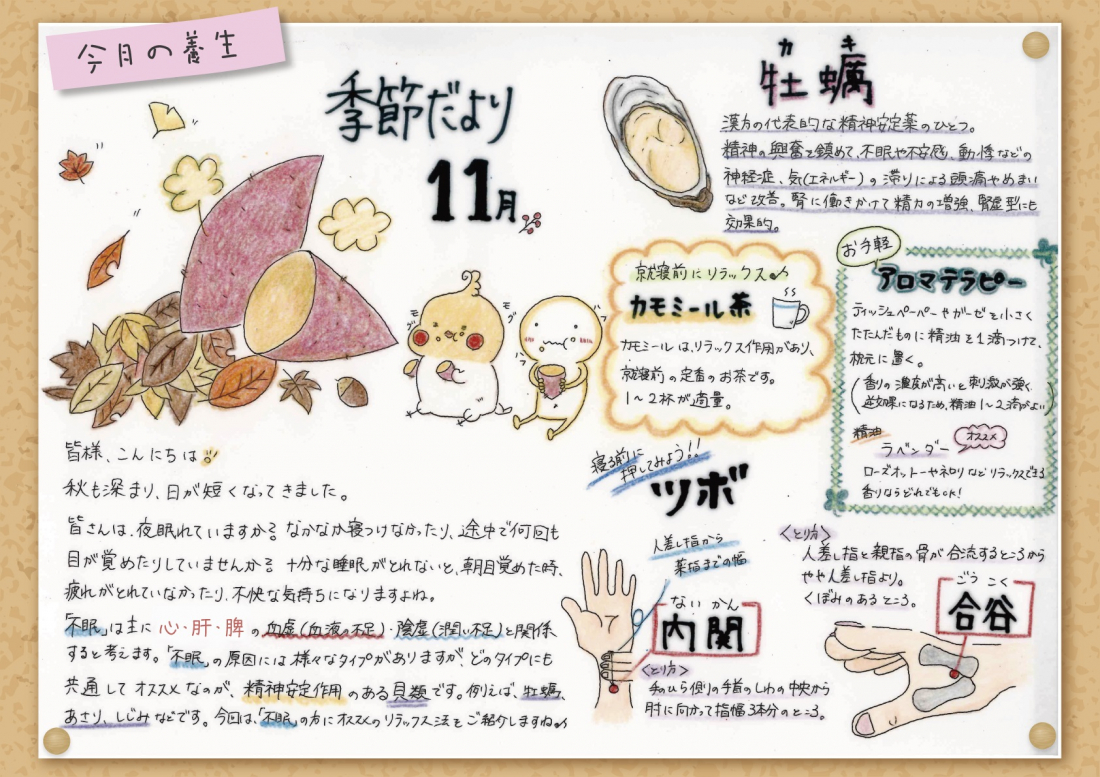 今月の養生
季節だより
11月
モグ
モグ
皆様、こんにちは
秋も深まり、日が短くなってきました。
皆さんは、夜眠れていますか？なかなか寝つけなかったり、途中で何回も
目が覚めたりしていませんか？十分な睡眠がとれないと、朝目覚めた時、
疲れがとれていなかったり、不快な気持ちになりますよね。
「不眠」は主に心・肝・脾の血虚(血液の不足)・陰虚(潤い不足)と関係
すると考えます。「不眠」の原因には様々なタイプがありますが、どのタイプにも
共通してオススメなのが、精神安定作用のある貝類です。例えば、牡蠣、
あさり、しじみなどです。今回は、「不眠」の方にオススメのリラックス法をご紹介しますね♪
カキ
牡蠣
漢方の代表的な精神安定薬のひとつ。
精神の興奮を鎮めて、不眠や不安感、動悸などの
神経症、気(エネルギー)の滞りによる頭痛やめまい
など改善。腎に働きかけて精力の増強、腎虚型にも
効果的。
就寝前にリラックス♪
カモミール茶
カモミールは、リラックス作用があり、
就寝前の定番のお茶です。
1～2杯が適量。
お手軽
アロマテラピー
ティッシュペーパーやガーゼを小さく
たたんだものに精油を1滴つけて、
枕元に置く。
(香りの濃度が高いと刺激が強く
逆効果になるため、精油1～2滴がよい)
精油
ラベンダー
オススメ
ローズオットーやネロリなどリラックスできる
香りならどれでもOK!
寝る前に
押してみよう!!
ツボ
人差し指から
薬指までの幅
ないかん
内関
<とり方>
手のひら側の手首のしわの中央から
肘に向かって指幅3本分のところ。
<とり方>
人差し指と親指の骨が合流するところから
やや人差し指より。
くぼみのあるところ。
ごうこく
合谷